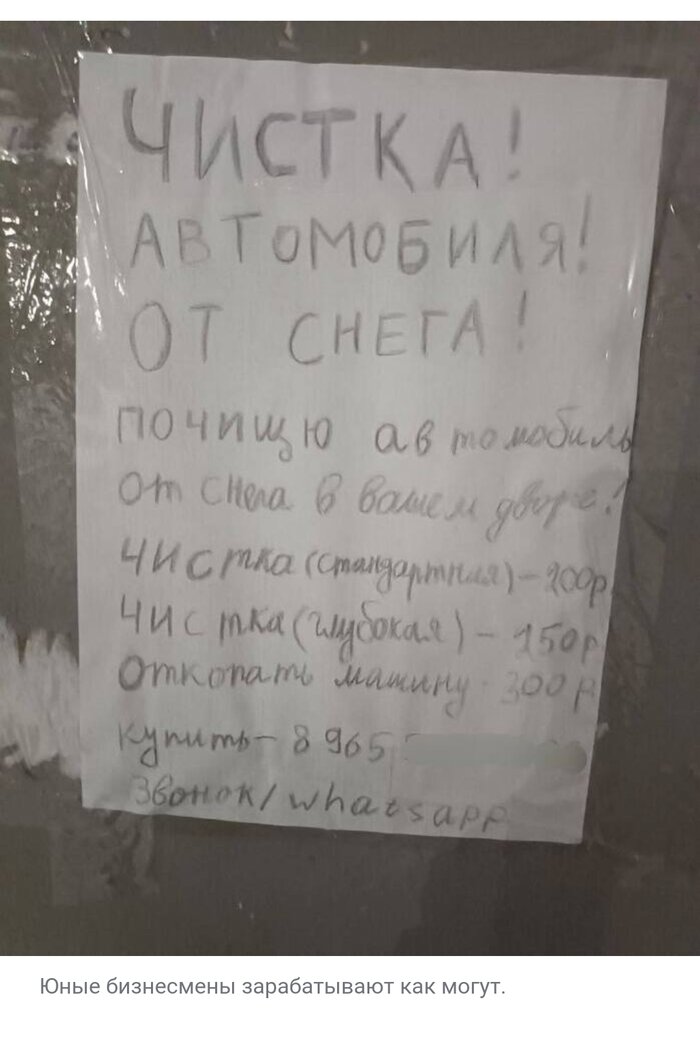 ЧИСТКА!
АВТОМОБИЛЯ!
ОТ СНЕГА!
ПОЧИЩЮ автомобиль
от снега в вашем дворе!
ЧИСТКА (стандартная) - 200р
ЧИСТКА (глубокая) - 250р
Откопать машину - 300р
купить - 8 965
Звонок/whatsapp
Юные бизнесмены зарабатывают как могут.